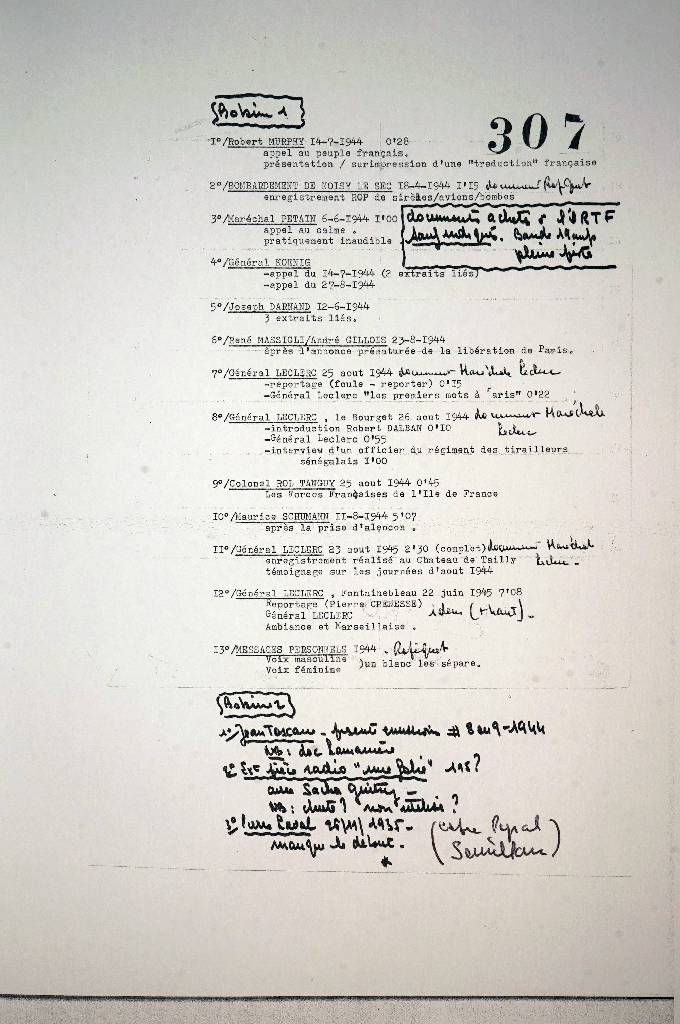 Bobine 1
307
1°/Robert MURPHY I4-7-I944 0'28
appel au peuple français.
présentation / surimpression d'une "traduction" française
2°/BOMBARDEMENT DE NOISY LE SEC I8-4-I944 I'I5 document
enregistrement ROP de sirènes/avions/bombes
3°/Maréchal PETAIN 6-6-I944 I'00
appel au calme .
pratiquement inaudible
documents achetés à l'ORTF
sauf indiqué. Bande 19
pleine piste
4°/Général KOENIG
-appel du I4-7-I944 (2 extraits liés)
-appel du 27-8-I944
5°/Joseph DARNAND I2-6-I944
3 extraits liés.
6°/René MASSIGLI/André GILLOIS 23-8-I944
après l'annonce prématurée de la libération de Paris.
7°/Général LECLERC 25 aout I944 document Maréchale Leclerc
-reportage (foule - reporter) 0'I5
-Général Leclerc "les premiers mots à Paris" 0'22
8°/Général LECLERC , le Bourget 26 aout I944 document Maréchale
Leclerc
-introduction Robert DALBAN 0'I0
-Général Leclerc 0'55
-interview d'un officier du régiment des tirailleurs
sénégalais I'00
9°/Colonel ROL TANGUY 25 aout I944 0'45
Les Forces Françaises de l'Ile de France
I0°/Maurice SCHUMANN II-8-I944 5'07
après la prise d'alençon .
II°/Général LECLERC 23 aout I945 2'30 (complet) document Maréchal
Leclerc -
enregistrement réalisé au Chateau de Tailly
témoignage sur les journées d'aout I944
I2°/Général LECLERC , Fontainebleau 22 juin I945 7'08
Reportage (Pierre CRENESSE) idem (+ haut) -
Général LECLERC
Ambiance et Marseillaise .
I3°/MESSAGES PERSONNELS I944 -
Voix masculine )un blanc les sépare.
Voix féminine
Bobine 2
1° Jean Toscan - présente émission # 8 ou 9-1944
NB : doc Lamanière
2° Ext pièce radio "une folie" 195?
avec Sacha Guitry -
NB : chute ? non utilisé ?
3° Pierre Laval 25/11/1935 -
manque le début.